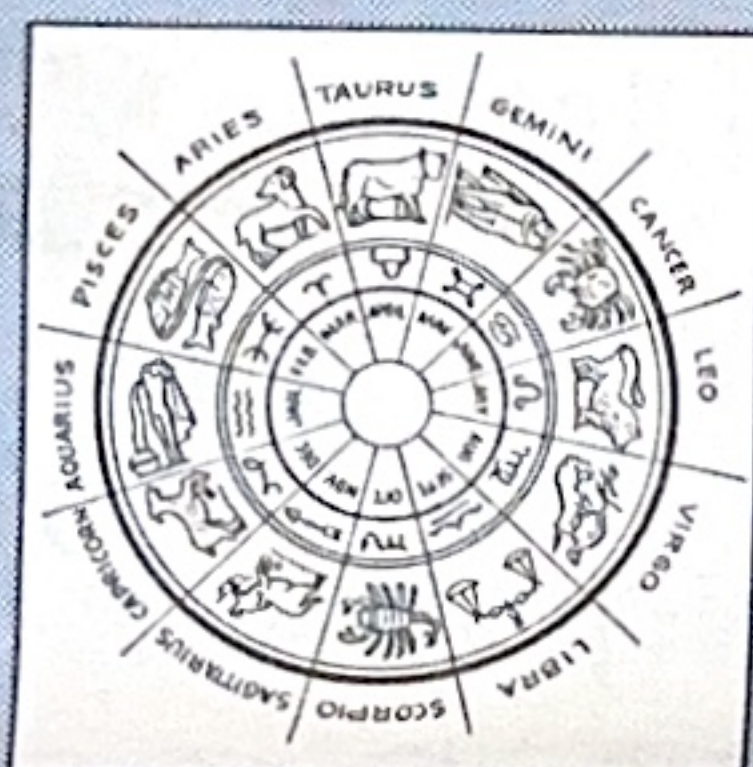 TAURUS
GEMINI
CANCER
LEO
VIRGO
LIBRA
SCORPIO
SAGITTARIUS
CAPRICORN
AQUARIUS
PISCES
ARIES
APRIL
JUNE
JULY
AUG
SEPT
OCT
NOV
DEC
JAN
FEB
MAR